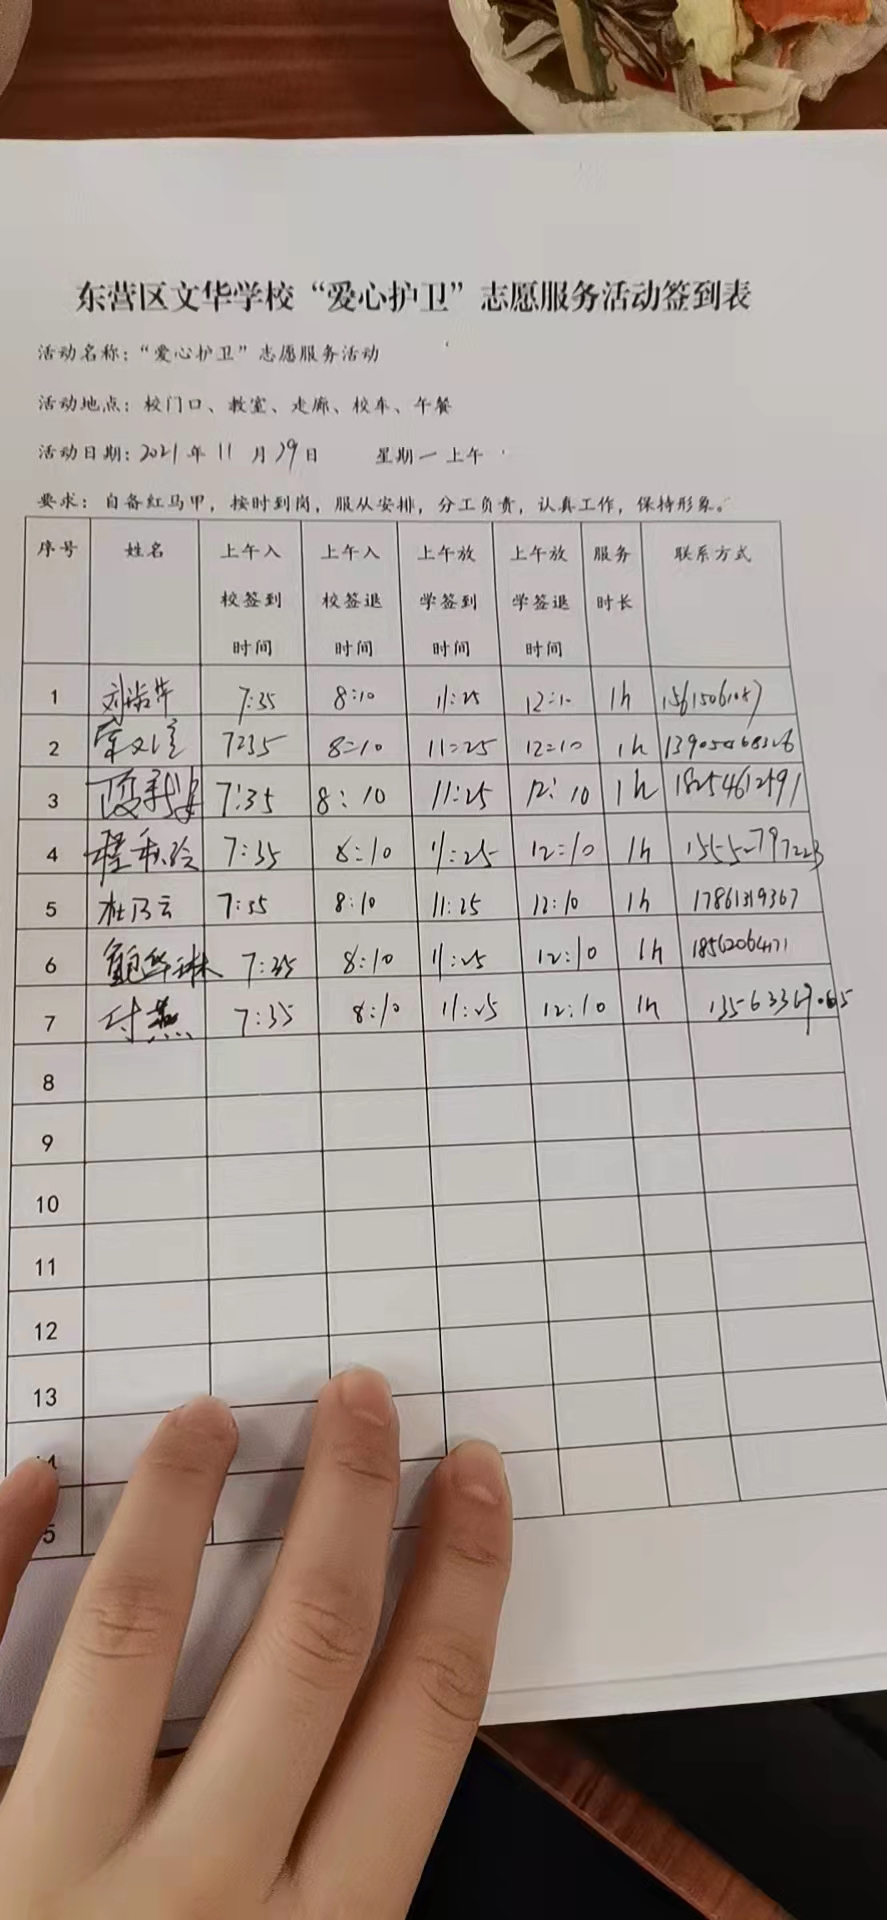 东营区文华学校“爱心护卫”志愿服务活动签到表
活动名称：“爱心护卫”志愿服务活动
活动地点：校门口、教室、走廊、校车、午餐
活动日期：2021年 11 月 29日 星期一上午
要求：自备红马甲，按时到岗，服从安排，分工负责，认真工作，保持形象。
序号 姓名 上午入校签到时间 上午入校签退时间 上午放学签到时间 上午放学签退时间 服务时长 联系方式
1 7:35 8:10 11:25 12:10 1h
2 7:35 8:10 11:25 12:10 1h
3 7:35 8:10 11:25 12:10 1h
4 7:35 8:10 11:25 12:10 1h
5 杜乃云 7:35 8:10 11:25 12:10 1h 17861319367
6 鲍华琳 7:35 8:10 11:25 12:10 1h
7 付燕 7:35 8:10 11:25 12:10 1h
8
9
10
11
12
13